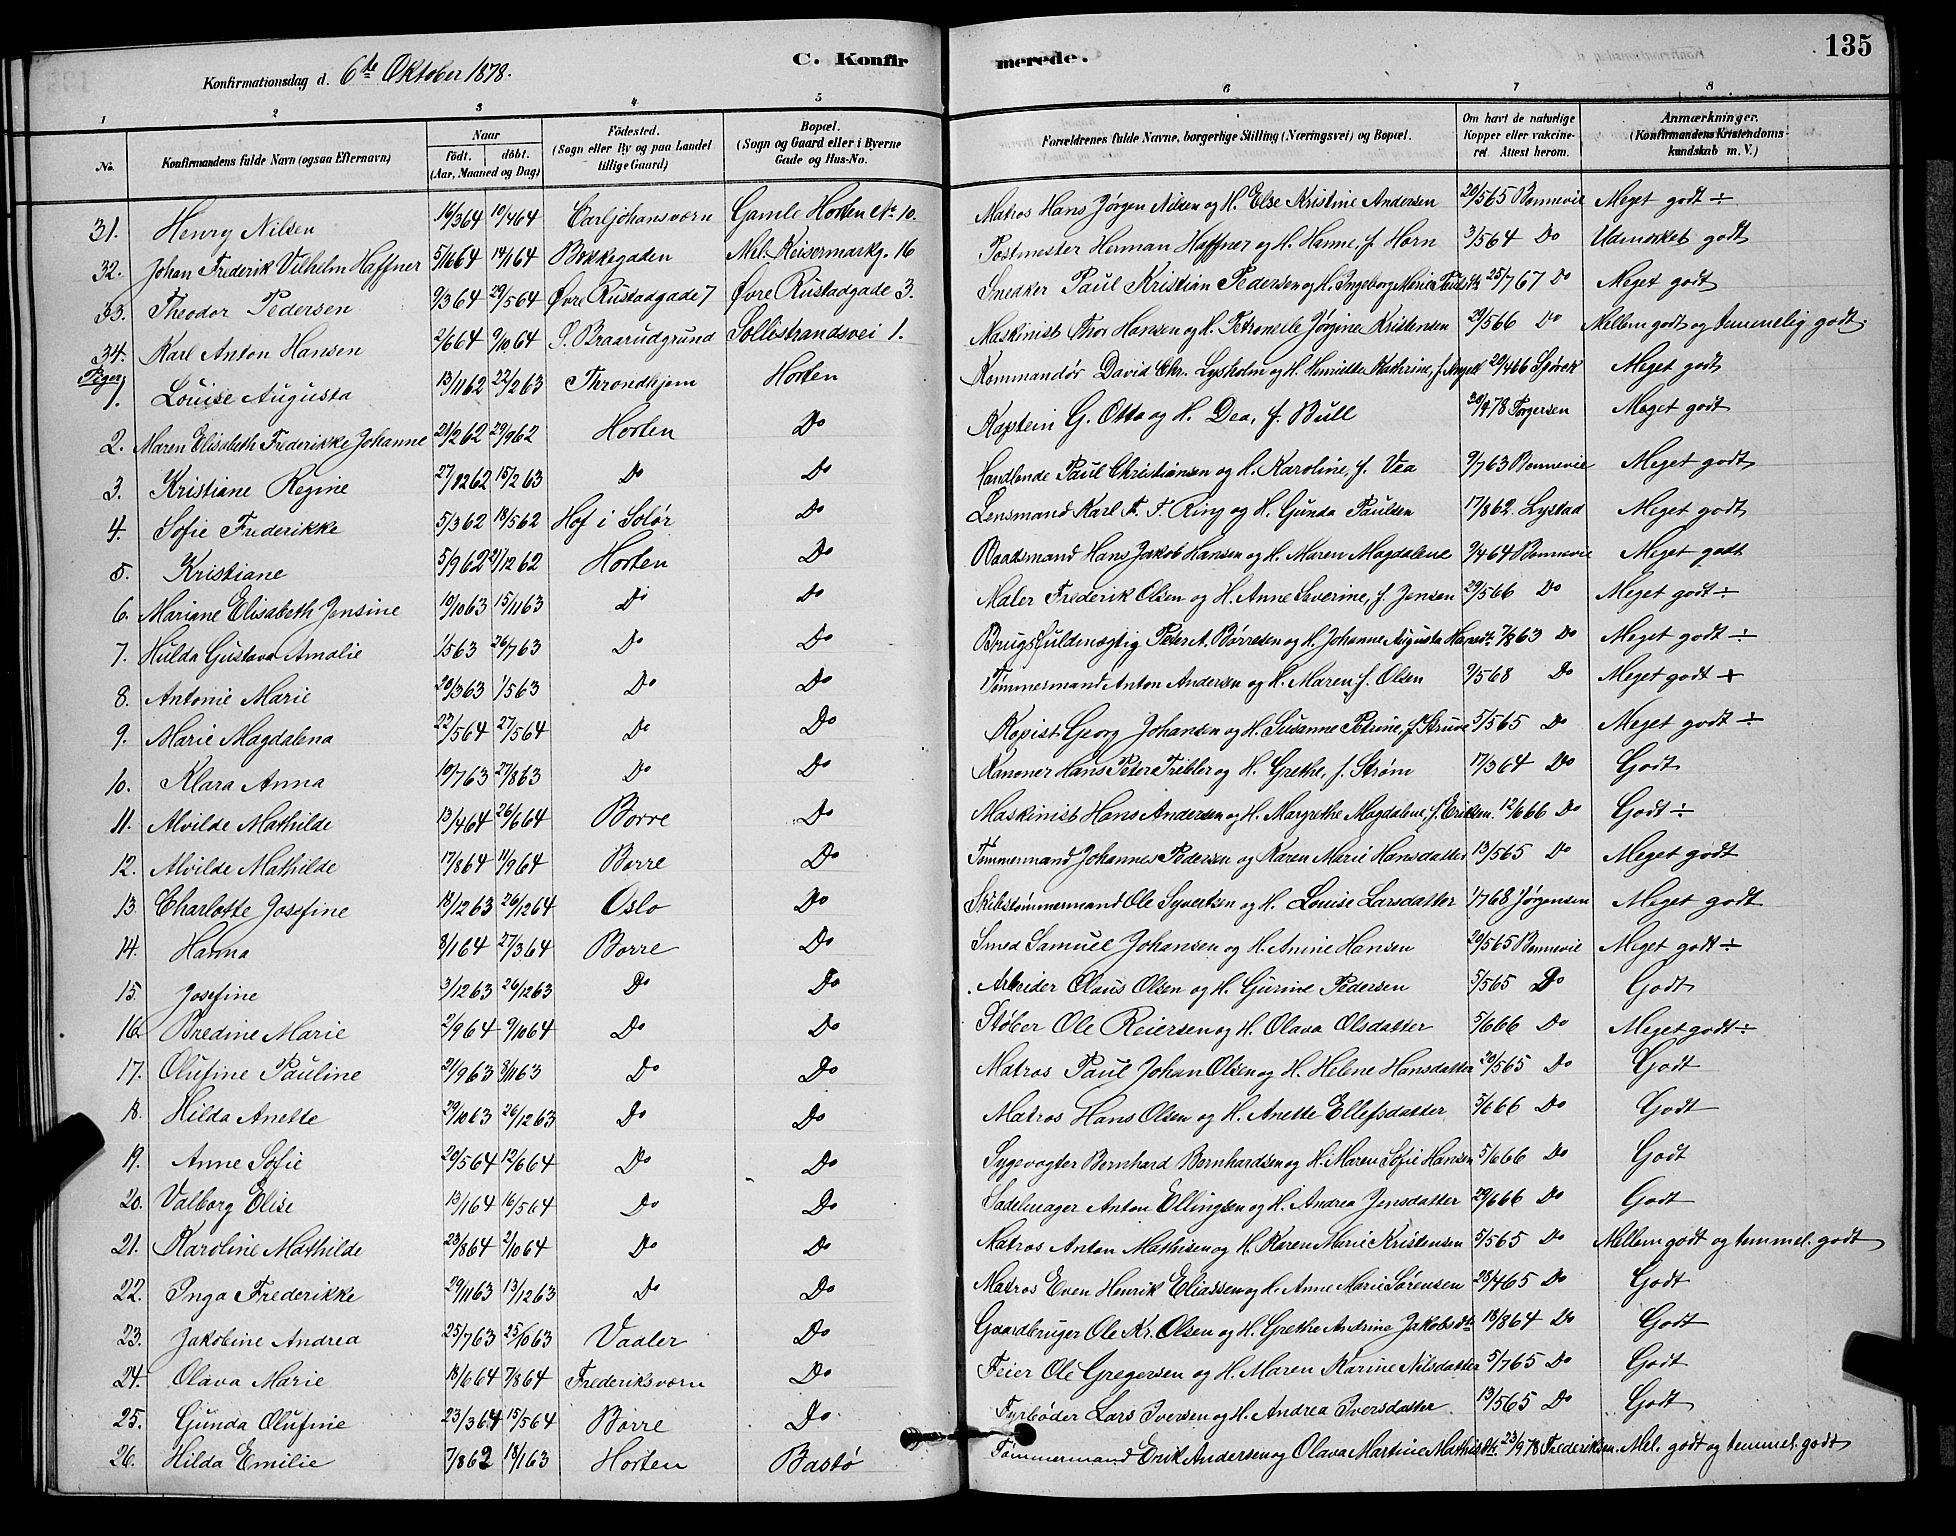 135
C. Konfirmerede.
Konfirmationsdag d. 6te Oktober 1878.
1 2 3 4 5 6 7 8
No. Konfirmandens fulde Navn (ogsaa Efternavn) Naar Födt. döbt. (Aar, Maaned og Dag) Födested. (Sogn eller By og paa Landet tillige Gaard) Bopæl. (Sogn og Gaard eller i Byerne Gade og Hus-No. Forældrenes fulde Navne, borgerlige Stilling (Næringsvei) og Bopæl. Om havt de naturlige Kopper eller vakcineret Attest herom. Anmærkninger. (Konfirmandens Kristendomskundskab m. V.)
31. Henry Nilsen 16/3 64 10/4 64 Carljohansværn Gamle Horten No 10. Matros Hans Jørgen Nilsen og H. Else Kristine Andersen 20/5 65 Bonnevie Meget godt ÷
32. Johan Frederik Vilhelm Haffner Bekkegaden Mel. Keisermarkg. 16 Postmester Herman Haffner og H. Hanne, f. Horn 3/5 64 Do Udmærket godt
33. Theodor Pedersen 9/3 64 29/5 64 Øvre Rustadgade 7 Øvre Rustadgade 3. Snedker Paul Kristian Pedersen og H. Ingeborg Marie 25/7 67 Do Meget godt
34. Karl Anton Hansen 2/6 64 9/10 64 S. Braarudgrund Sollistrandsvei 1. Maskinist Thor Hansen og H. Petronelle Jørgine Kristensen 29/5 66 Do Mellem godt og temmelig godt.
Piger
1. Louise Augusta 13/11 62 22/2 63 Throndhjem Horten Kommandør David Chr. Lysholm og H. Henriette Kathrine, f. 20/4 66 Meget godt
2. Maren Elisabeth Frederikke Johanne 21/2 62 29/9 62 Horten Do Kaptein G. Otto og H. Dea, f. Bull 78 Torgersen Meget godt
3. Kristiane Regine 27/12 62 15/2 63 Do Do Handlende Paul Christiansen og H. Karoline, f. Vea 9/7 63 Bonnevie Meget godt
4. Sofie Frederikke 5/3 62 18/5 62 Hof i Solør Do Lensmand Karl F. T. Ring og H. Gunda Paulsen 17/8 62. Lystad Meget godt
5. Kristiane 5/9 62 21/12 62 Horten Do Baadsmand Hans Jakob Hansen og H. Maren Magdalene 9/4 64 Bonnevie Meget godt
6. Mariane Elisabeth Jensine 10/10 63 15/11 63 Do Do Maler Frederik Olsen og H. Anne Severine, f. Jensen 29/5 66 Do Meget godt ÷
7. Hulda Gustava Amalie 1/5 63 26/7 63 Do Do Brugsfuldmægtig Peter A. Børresen og H. Johanne Augusta 7/8 63 Do Meget godt ÷
8. Antonie Marie 20/3 63 1/5 63 Do Do Tømmermand Anton Andersen og H. Maren, f. Olsen 9/5 68 Do Meget godt ÷
9. Marie Magdalena 22/5 64 27/5 64 Do Do Kopist Georg Johansen og H. Susanne Petrine, f. Struve 5/5 65 Do Meget godt ÷
10. Klara Anna 10/7 63 27/8 63 Do Do Kanoner Hans Peter Tribler og H. Grethe, f. Strøm 17/3 64 Do Godt
11. Alvilde Mathilde 13/4 64 26/6 64 Borre Do Maskinist Hans Andersen og H. Margrethe Magdalene, f. Eriksen. 12/6 66 Do Godt ÷
12. Alvilde Mathilde 17/8 64 11/9 64 Borre Do Tømmermand Johannes Pedersen og Karen Marie Hansdatter 13/5 65 Do Meget godt
13. Charlotte Josefine 18/12 63 26/12 64 Oslo Do Skibstømmermand Ole Syvertsen og H. Louise Larsdatter 1/7 68 Jørgensen Meget godt
14. Hanna 8/1 64 27/3 64 Borre Do Smed Samuel Johansen og H. Anine Hansen 20/5 65 Bonnevie Meget godt ÷
15. Josefine 3/12 63 26/12 63 Do Do Arbeider Olaus Olsen og H. Gurine Pedersen 5/5 65 Do Godt
16. Bredine Marie 2/9 64 9/10 64 Do Do Støber Ole Reiersen og H. Olava Olsdatter 5/6 66 Do Meget godt ÷
17. Olufine Pauline 21/9 63 8/11 63 Do Do Matros Paul Johan Olsen og H. Helene Hansdatter 20/5 65 Do Godt
18. Hilda Anette 29/10 63 26/12 63 Do Do Matros Hans Olsen og H. Anette Ellefsdatter 5/6 66 Do Godt
19. Anne Sofie 20/5 64 12/6 64 Do Do Sygevogter Bernhard Bernhardsen og H. Maren Sofie Hansen 5/6 66 Do Godt
20. Valborg Elise 13/1 64 16/5 64 Do Do Sadelmager Anton Ellingsen og H. Andrea Jensdatter 29/6 66 Do Godt
21. Karoline Mathilde 23/8 64 2/10 64 Do Do Matros Anton Mathisen og H. Karen Marie Kristensen 5/5 65 Do Mellem godt og temmel. godt
22. Inga Frederikke 29/11 63 13/12 63 Do Do Matros Even Henrik Eliassen og H. Anne Marie Sørensen 28/4 65 Do Godt
23. Jakobine Andrea 25/7 63 25/10 63 Vaaler Do Gaardbruger Ole Kr. Olsen og H. Grethe Andrine Jakobsdtr 18/8 64 Do Godt
24. Olava Marie 18/6 64 7/8 64 Frederiksværn Do Feier Ole Gregersen og H. Maren Karine Nilsdatter 5/7 65 Do Godt
25. Gunda Olufine 23/3 64 15/5 64 Borre Do Fyrbøder Lars Iversen og H. Andrea Iversdatter 13/5 65 Do Godt
26. Hilda Emilie 7/8 62 18/1 63 Horten Bastø Tømmermand Erik Andersen og Olava Martine Mathisdtr. 23/9 78 Frederiksen. Mel. godt og temmel. godt